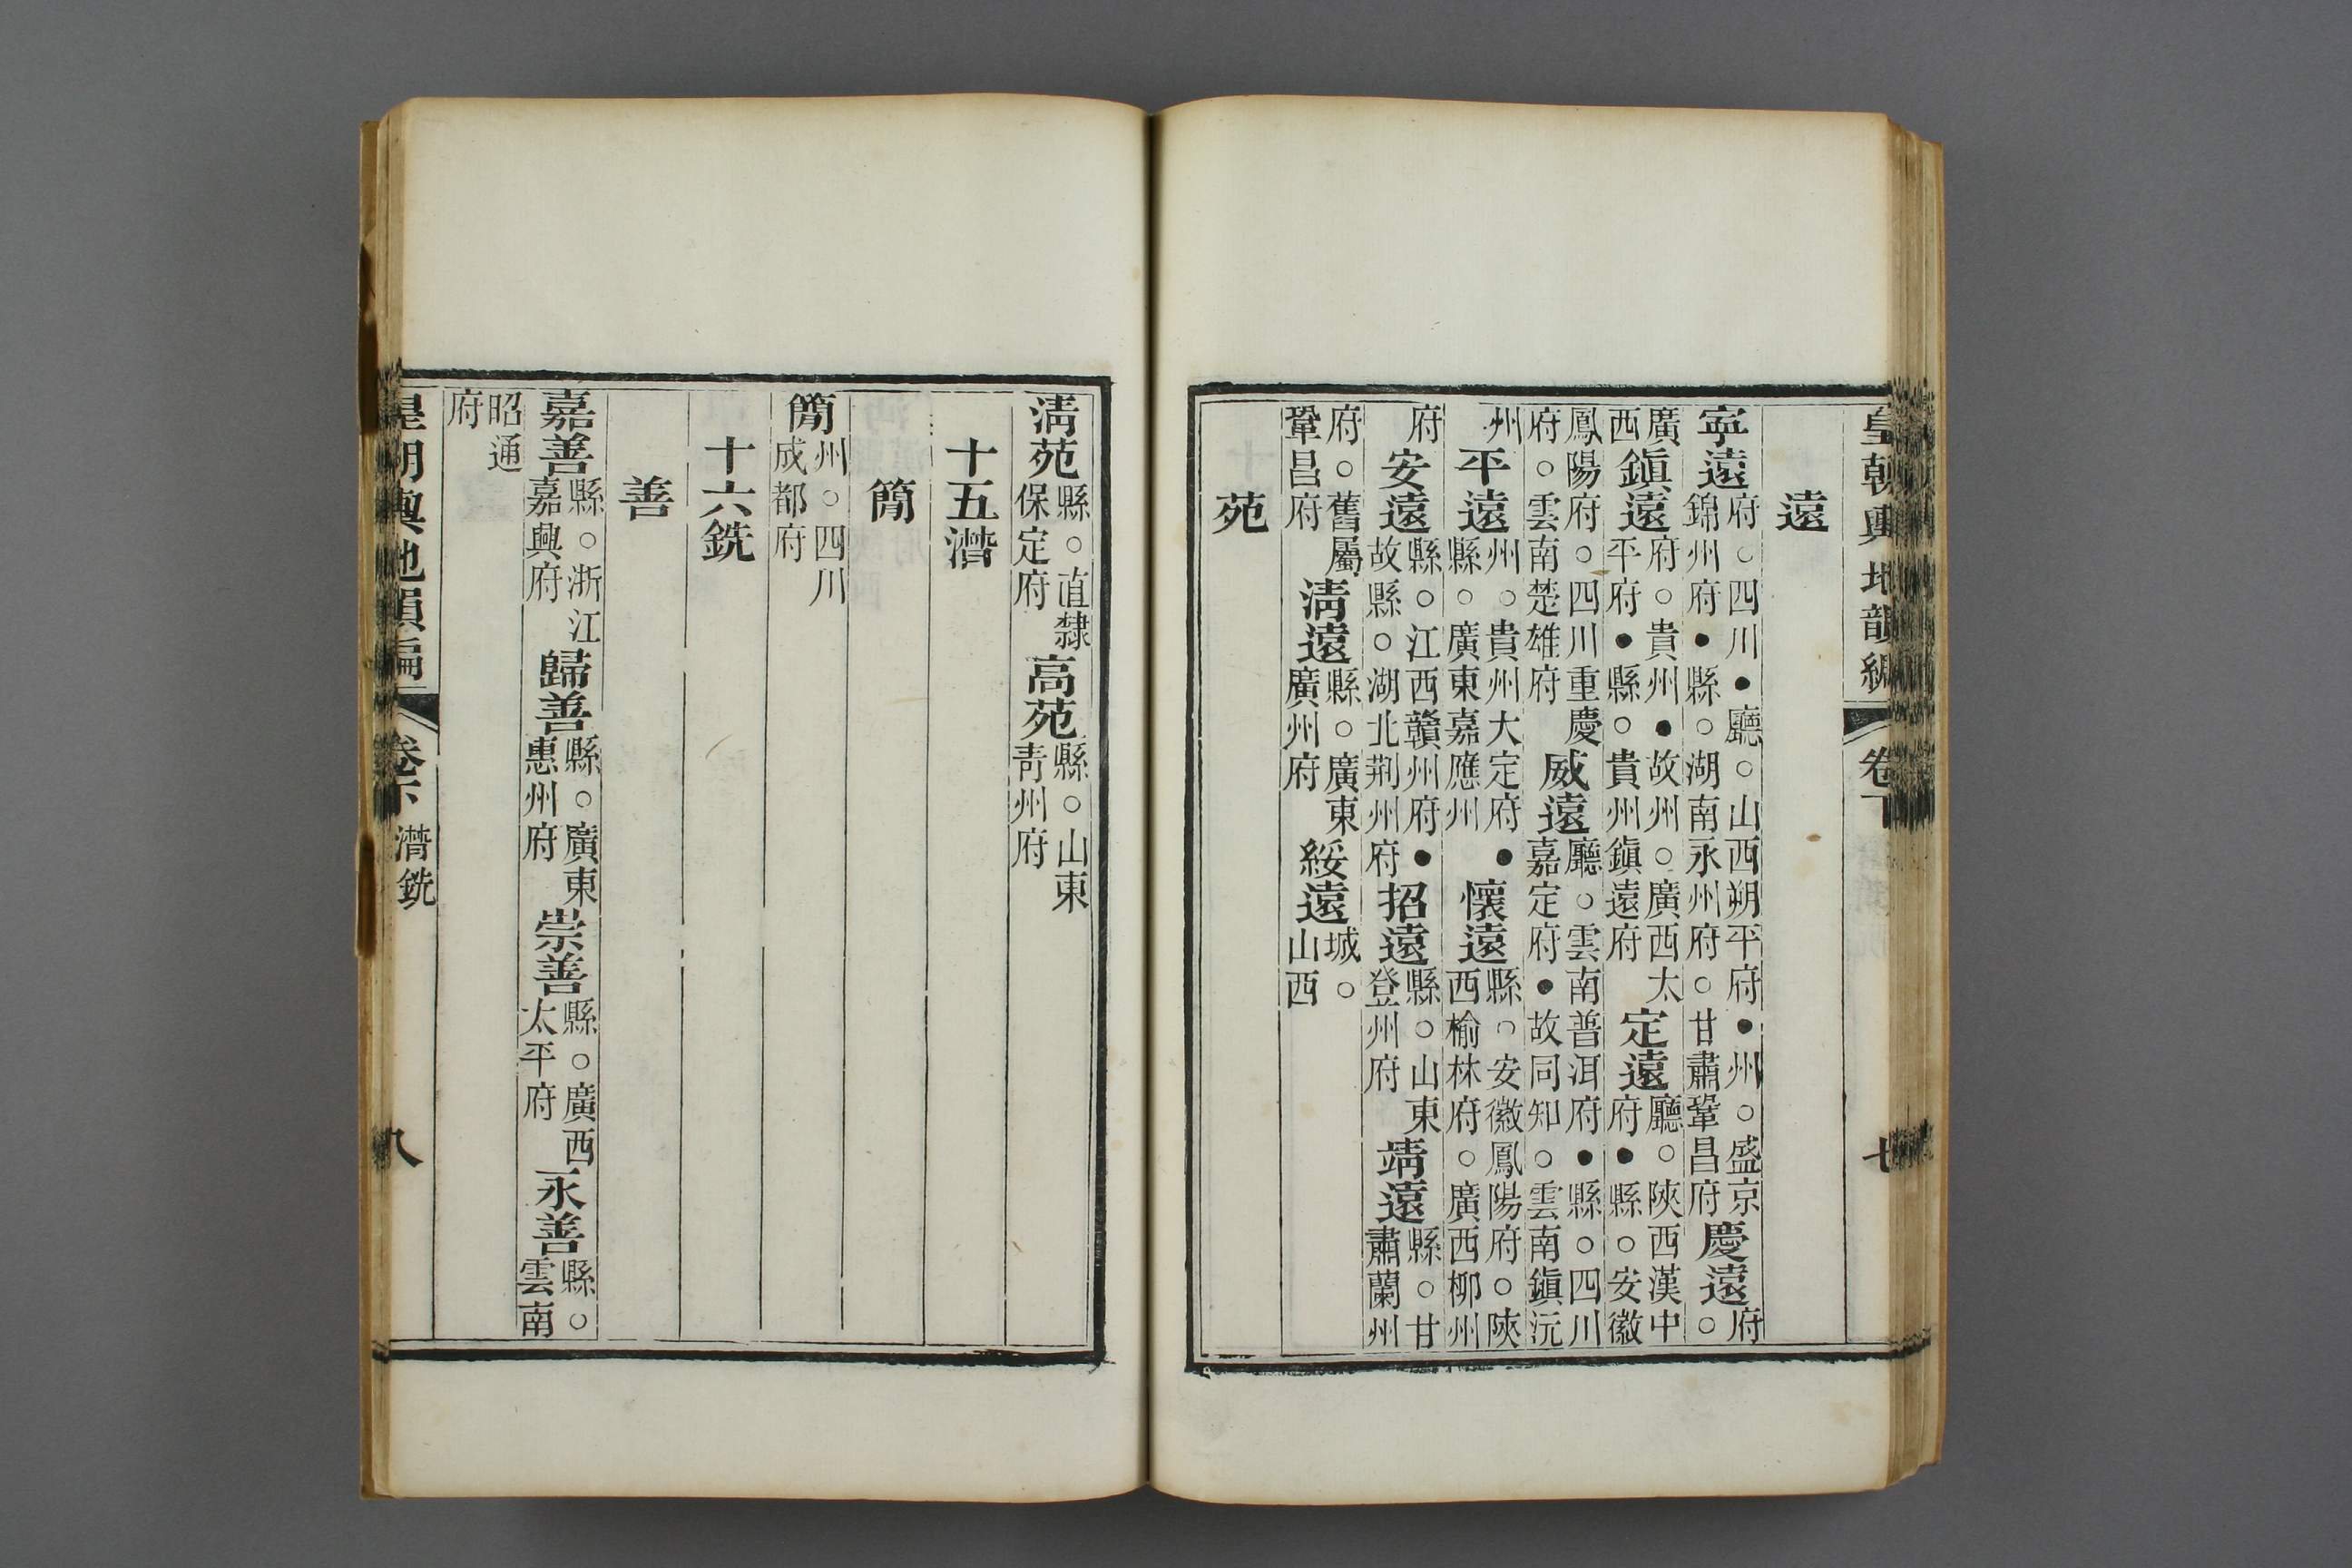 皇朝輿地韻編 卷下 七
遠
寧遠府○四川●廳○山西朔平府●州○盛京錦州府●縣○湖南永州府○甘肅鞏昌府慶遠府○
廣西鎭遠府○貴州●故州○廣西太平府●縣○貴州鎭遠府定遠廳○陝西漢中府●縣○安徽
鳳陽府○四川重慶府○雲南楚雄府威遠廳○雲南普洱府●縣○四川嘉定府●故同知○雲南鎭沅
州平遠州○貴州大定府●縣○廣東嘉應州懷遠縣○安徽鳳陽府○陝西榆林府○廣西柳州
府安遠縣○江西贛州府●故縣○湖北荆州府招遠縣○山東登州府靖遠縣○甘肅蘭州
府○舊屬鞏昌府淸遠縣○廣東廣州府綏遠城○山西
苑
淸苑縣○直隸保定府高苑縣○山東靑州府
十五潸
簡
簡州○四川成都府
十六銑
善
嘉善縣○浙江嘉興府歸善縣○廣東惠州府崇善縣○廣西太平府永善縣○雲南
昭通府
皇朝輿地韻編 卷下 潸銑 八